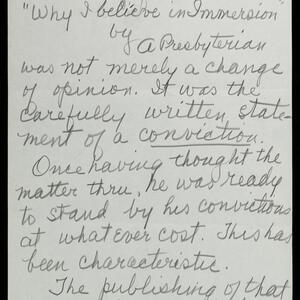 "Why I believe in Immersion"
by
A Presbyterian
was not merely a change
of opinion. It was the
carefully written state-
ment of a conviction.
Once having thought the
matter thru, he was ready
to stand by his convictions
at what ever cost. This has
been characteristic.
The publishing of that